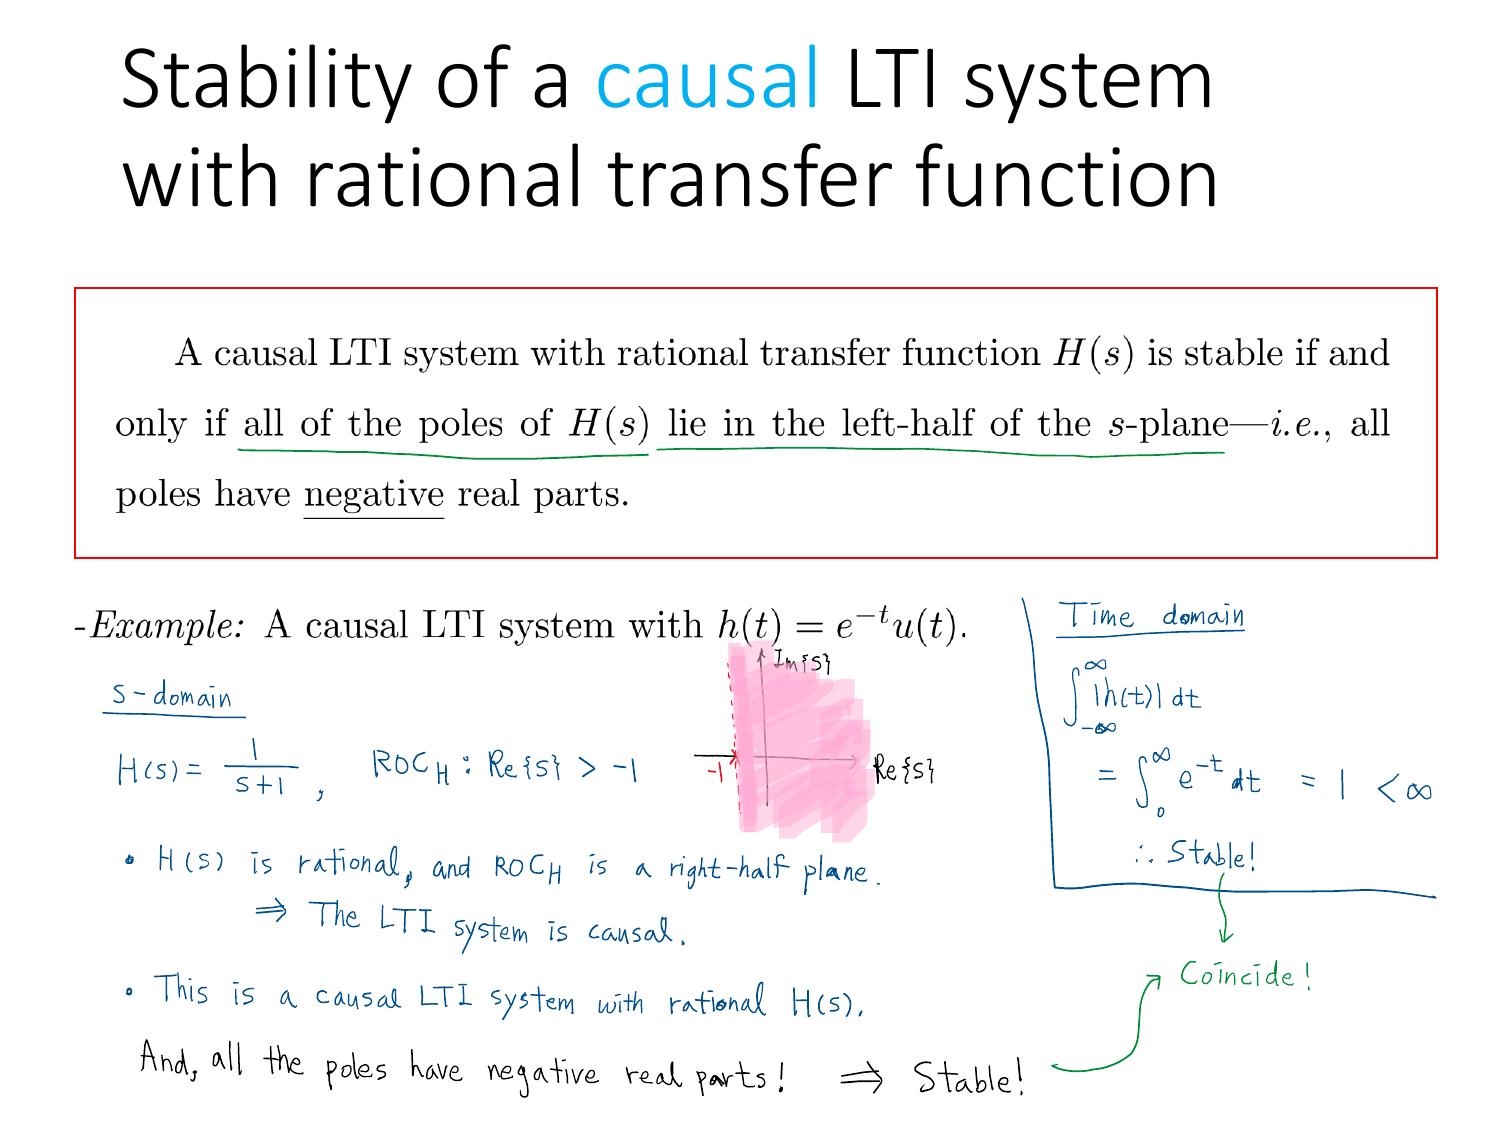 Stability of a causal LTI system
with rational transfer function
A causal LTI system with rational transfer function H(s) is stable if and
only if all of the poles of H(s) lie in the left-half of the s-plane—i.e., all
poles have negative real parts.
-Example: A causal LTI system with h(t) = e^{-t}u(t).
s-domain
H(s) = \frac{1}{s+1}, ROC_H : Re{s} > -1
Im{s}
-1
Re{s}
• H(s) is rational, and ROC_H is a right-half plane.
⇒ The LTI system is causal.
• This is a causal LTI system with rational H(s).
And, all the poles have negative real parts! ⇒ Stable!
Time domain
∫_{-∞}^{∞} |h(t)| dt
= ∫_0^∞ e^{-t} dt = 1 < ∞
∴ Stable!
Coincide!